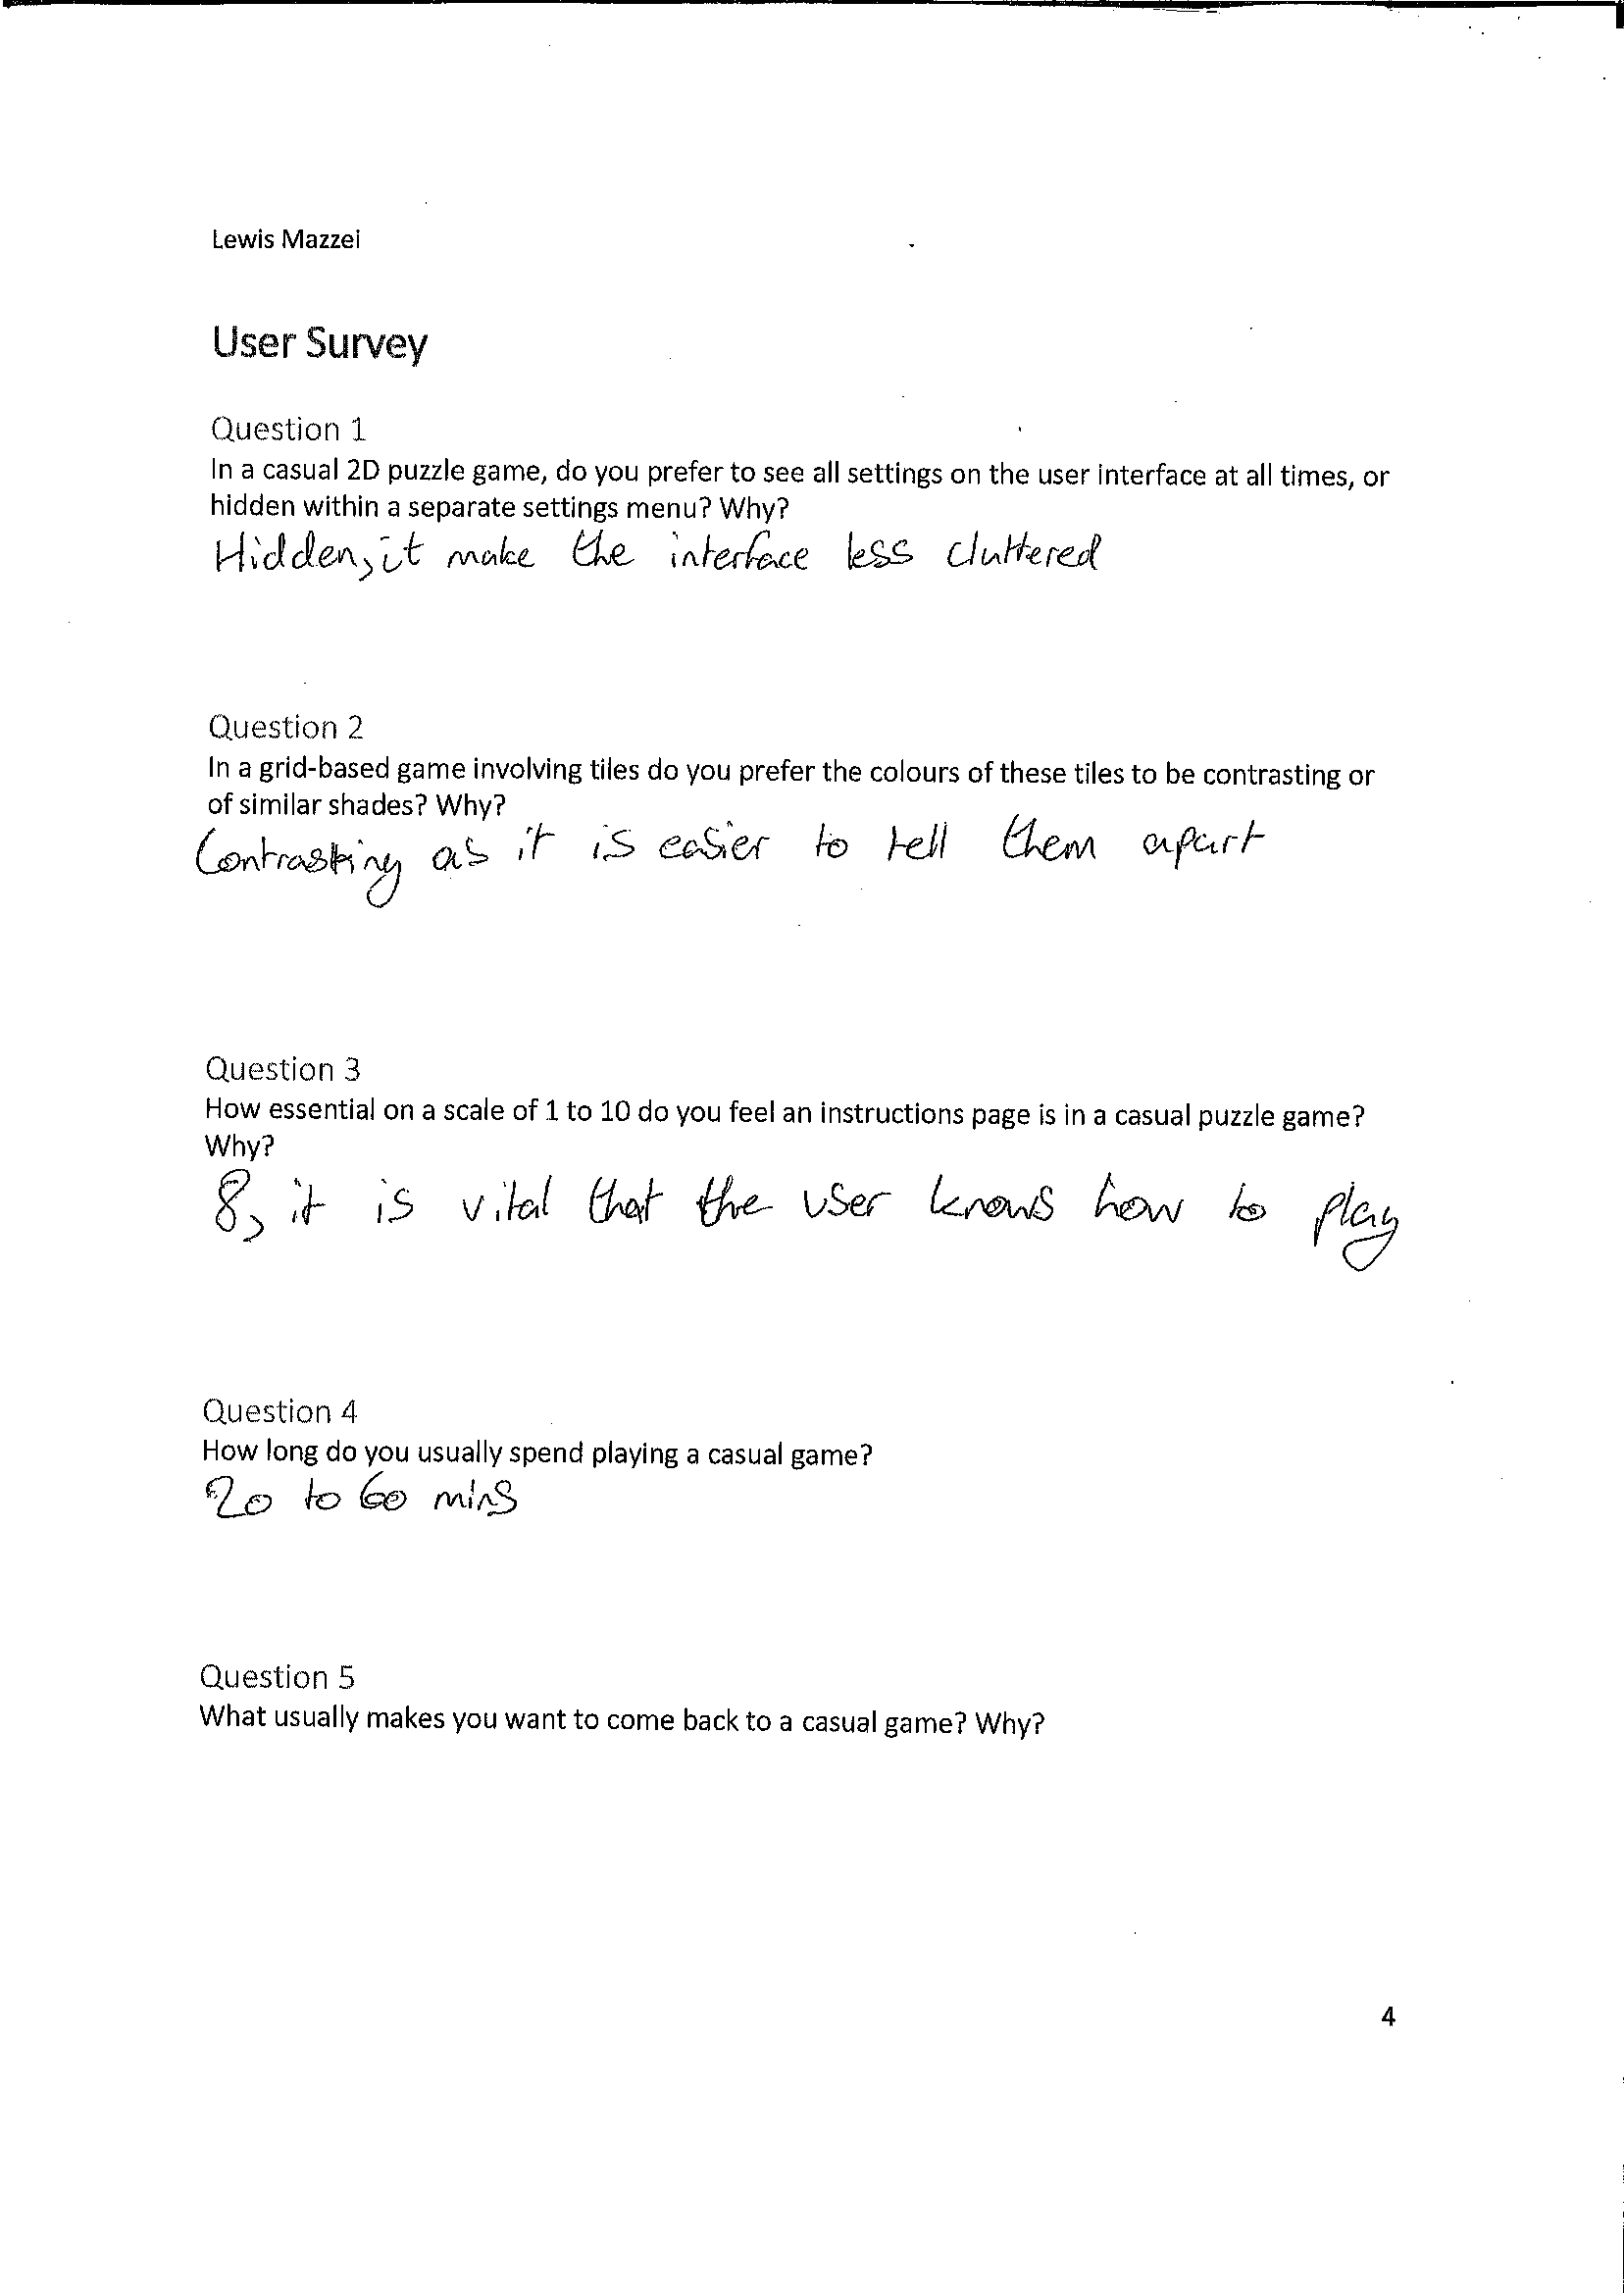 Lewis Mazzei
User Survey
Question 1
In a casual 2D puzzle game, do you prefer to see all settings on the user interface at all times, or
hidden within a separate settings menu? Why?
Hidden, it make the interface less cluttered
Question 2
In a grid-based game involving tiles do you prefer the colours of these tiles to be contrasting or
of similar shades? Why?
Contrasting as it is easier to tell them apart
Question 3
How essential on a scale of 1 to 10 do you feel an instructions page is in a casual puzzle game?
Why?
8, it is vital that the user knows how to play
Question 4
How long do you usually spend playing a casual game?
20 to 60 mins
Question 5
What usually makes you want to come back to a casual game? Why?
4